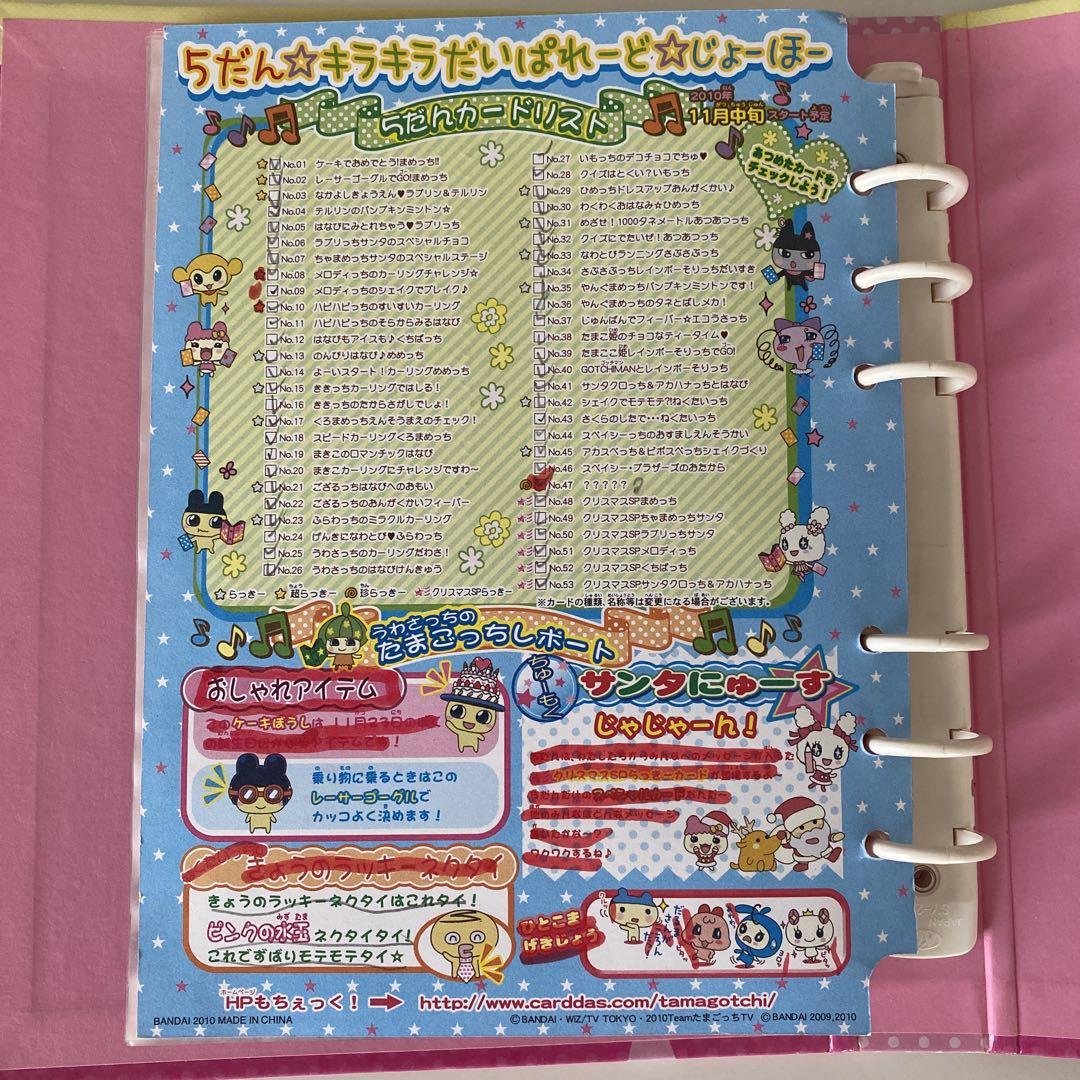 5だん☆キラキラだいぱれーど☆じょーほー
5だんカードリスト
2010年
11月中旬スタート予定
あつめたカードを
チェックしよう!
No.01 ケーキでおめでとう!まめっち!!
No.02 レーサーゴーグルでGO!まめっち
No.03 なかよしきょうえん♥ラブリン&テルリン
No.04 テルリンのパンプキンミントン☆
No.05 はなびにみとれちゃう♥ラブリっち
No.06 ラブリっちサンタのスペシャルチョコ
No.07 ちゃまめっちサンタのスペシャルステージ
No.08 メロディっちのカーリングチャレンジ☆
No.09 メロディっちのシェイクでブレイク♪
No.10 ハピハピっちのすいすいカーリング
No.11 ハピハピっちのそらからみるはなび
No.12 はなびもアイスも♪くちぱっち
No.13 のんびりはなび♪めめっち
No.14 よーいスタート!カーリングめめっち
No.15 ききっちカーリングではしる!
No.16 ききっちのたからさがしでしょ!
No.17 くろまめっちえんそうまえのチェック!
No.18 スピードカーリングくろまめっち
No.19 まきこのロマンチックはなび
No.20 まきこカーリングにチャレンジですわ~
No.21 ござるっちはなびへのおもい
No.22 ござるっちのおんがくかいフィーバー
No.23 ふらわっちのミラクルカーリング
No.24 げんきになわとび♥ふらわっち
No.25 うわさっちのカーリングだわさ!
No.26 うわさっちのはなびけんきゅう
No.27 いもっちのデコチョコでちゅ♥
No.28 クイズはとくい?いもっち
No.29 ひめっちドレスアップおんがくかい♪
No.30 わくわくおはなみ☆ひめっち
No.31 めざせ!1000タネメートルあつあつっち
No.32 クイズにでたいぜ!あつあつっち
No.33 なわとびランニングさぶさぶっち
No.34 さぶさぶっちレインボーそりっちだいすき
No.35 やんぐまめっちパンプキンミントンです!
No.36 やんぐまめっちのタネとばしメカ!
No.37 じゅんぱんでフィーバー☆エコうさっち
No.38 たまこ姫のチョコなティータイム♥
No.39 たまここ姫レインボーそりっちでGO!
No.40 GOTCHIMANとレインボーそりっち
No.41 サンタクロっち&アカハナっちとはなび
No.42 シェイクでモテモテ?!ねくたいっち
No.43 さくらのしたで・・・ねくたいっち
No.44 スペイシーっちのおすましえんそうかい
No.45 アカスペっち&ピポスペっちシェイクづくり
No.46 スペイシー・ブラザーズのおたから
No.47 ?????
No.48 クリスマスSPまめっち
No.49 クリスマスSPちゃまめっちサンタ
No.50 クリスマスSPラブリっちサンタ
No.51 クリスマスSPメロディっち
No.52 クリスマスSPくちぱっち
No.53 クリスマスSPサンタクロっち&アカハナっち
☆らっきー ☆超らっきー 珍らっきー クリスマスSPらっきー
※カードの種類、名称等は変更になる場合がございます。
うわさっちの
たまごっちレポート
おしゃれアイテム
このケーキぼうしは11月23日の
乗り物に乗るときはこの
レーサーゴーグルで
カッコよく決めます!
ちゅーもく
サンタにゅーす
じゃじゃーん!
クリスマスSPらっきーカードが登場するよ~
ワクワクするね♪
きょうのラッキーネクタイ
きょうのラッキーネクタイはこれタイ!
ピンクの水玉ネクタイタイ!
これでずばりモテモテタイ☆
ひとこま
げきじょう
ホームページ
HPもちぇっく!➡http://www.carddas.com/tamagotchi/
BANDAI 2010 MADE IN CHINA
©BANDAI・WiZ/TV TOKYO・2010TeamたまごっちTV ©BANDAI 2009,2010